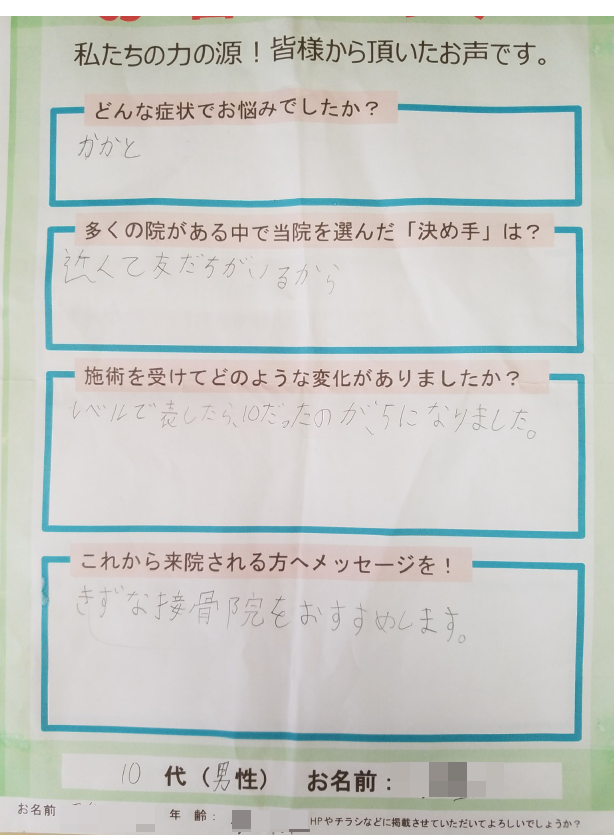 私たちの力の源！皆様から頂いたお声です。
どんな症状でお悩みでしたか？
かかと
多くの院がある中で当院を選んだ「決め手」は？
近くて友だちがいるから
施術を受けてどのような変化がありましたか？
レベルで表したら、10だったのが、5になりました。
これから来院される方へメッセージを！
きずな接骨院をおすすめします。
10 代（男性） お名前：
お名前 年 齢： HPやチラシなどに掲載させていただいてよろしいでしょうか？